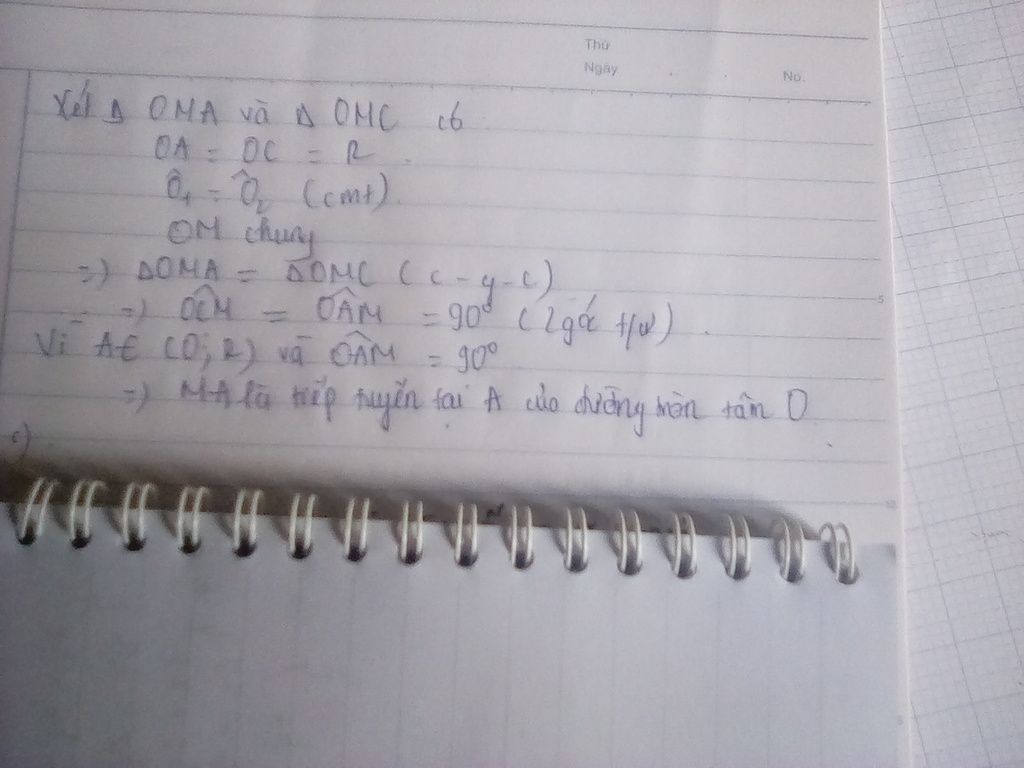 Thứ
Ngày
No.
Xét Δ OMA và Δ OMC có
OA = OC = R.
Ô₁ = Ô₂ (cmt)
OM chung
=) ΔOMA = ΔOMC (c-g-c)
=) OĈM = OÂM = 90⁰ (2 góc t/ư).
Vì A∈ (O; R) và OÂM = 90⁰
=) MA là tiếp tuyến tại A của đường tròn tâm O
c)
5